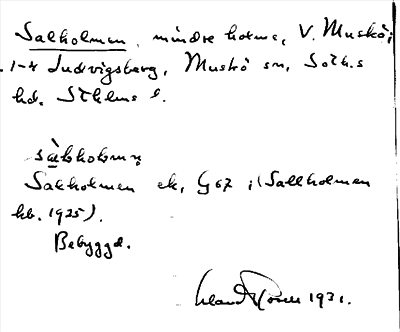 Salholmen, mindre holme, V. Muskö;
1-4 Ludvigsberg, Muskö sn, Soth.s
hd. Sthlms l.
Salholmen ek, G 67 ; (Sallholmen
hb. 1925).
Bebyggd.
1931.